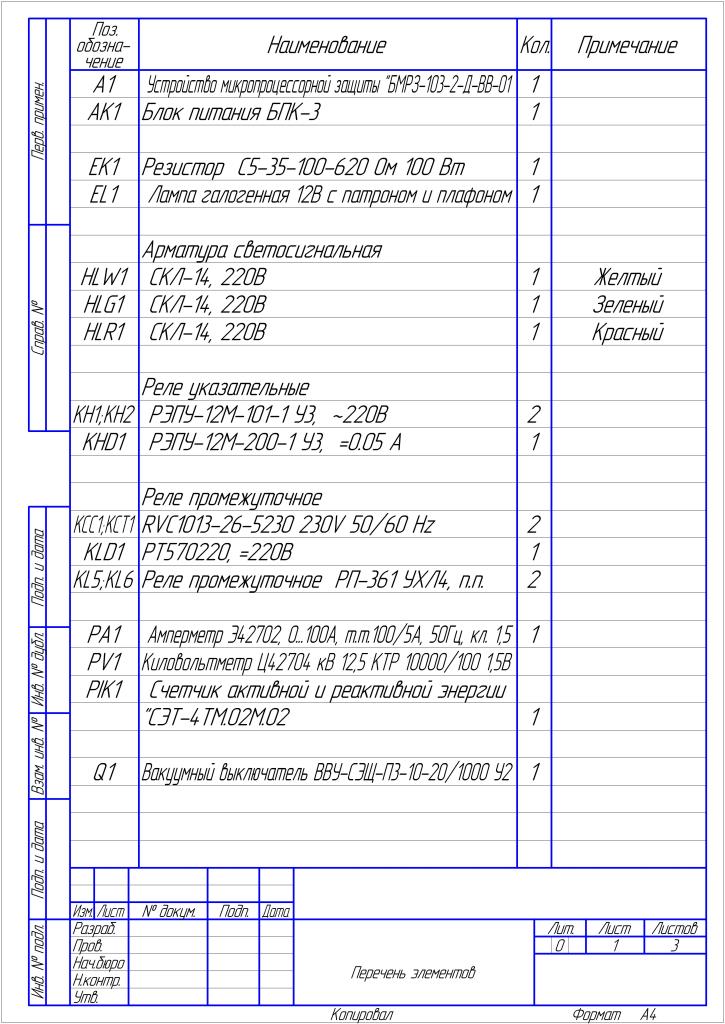 Поз. обозна-чение Наименование Кол. Примечание
А1 Устройство микропроцессорной защиты "БМРЗ-103-2-Д-ВВ-01 1
АК1 Блок питания БПК-3 1
ЕК1 Резистор С5-35-100-620 Ом 100 Вт 1
EL1 Лампа галогенная 12В с патроном и плафоном 1
Арматура светосигнальная
HLW1 СКЛ-14, 220В 1 Желтый
HLG1 СКЛ-14, 220В 1 Зеленый
HLR1 СКЛ-14, 220В 1 Красный
Реле указательные
КН1;КН2 РЭПУ-12М-101-1 У3, ~220В 2
KHD1 РЭПУ-12М-200-1 У3, =0.05 А 1
Реле промежуточное
КСС1;КСТ1 RVC1013-26-5230 230V 50/60 Hz 2
KLD1 РТ570220, =220В 1
KL5;KL6 Реле промежуточное РП-361 УХЛ4, п.п. 2
РА1 Амперметр Э42702, 0...100А, т.т.100/5А, 50Гц, кл. 1,5 1
PV1 Киловольтметр Ц42704 кВ 12,5 КТР 10000/100 1,5В
PIK1 Счетчик активной и реактивной энергии
"СЭТ-4ТМ.02М.02 1
Q1 Вакуумный выключатель ВВУ-СЭЩ-П3-10-20/1000 У2 1
Перв. примен.
Справ. №
Подп. и дата
Инв. № дубл.
Взам. инв. №
Подп. и дата
Инв. № подл.
Изм. Лист № докум. Подп. Дата
Разраб.
Пров.
Нач.бюро
Н.контр.
Утв.
Перечень элементов
Лит. Лист Листов
О 1 3
Копировал Формат А4